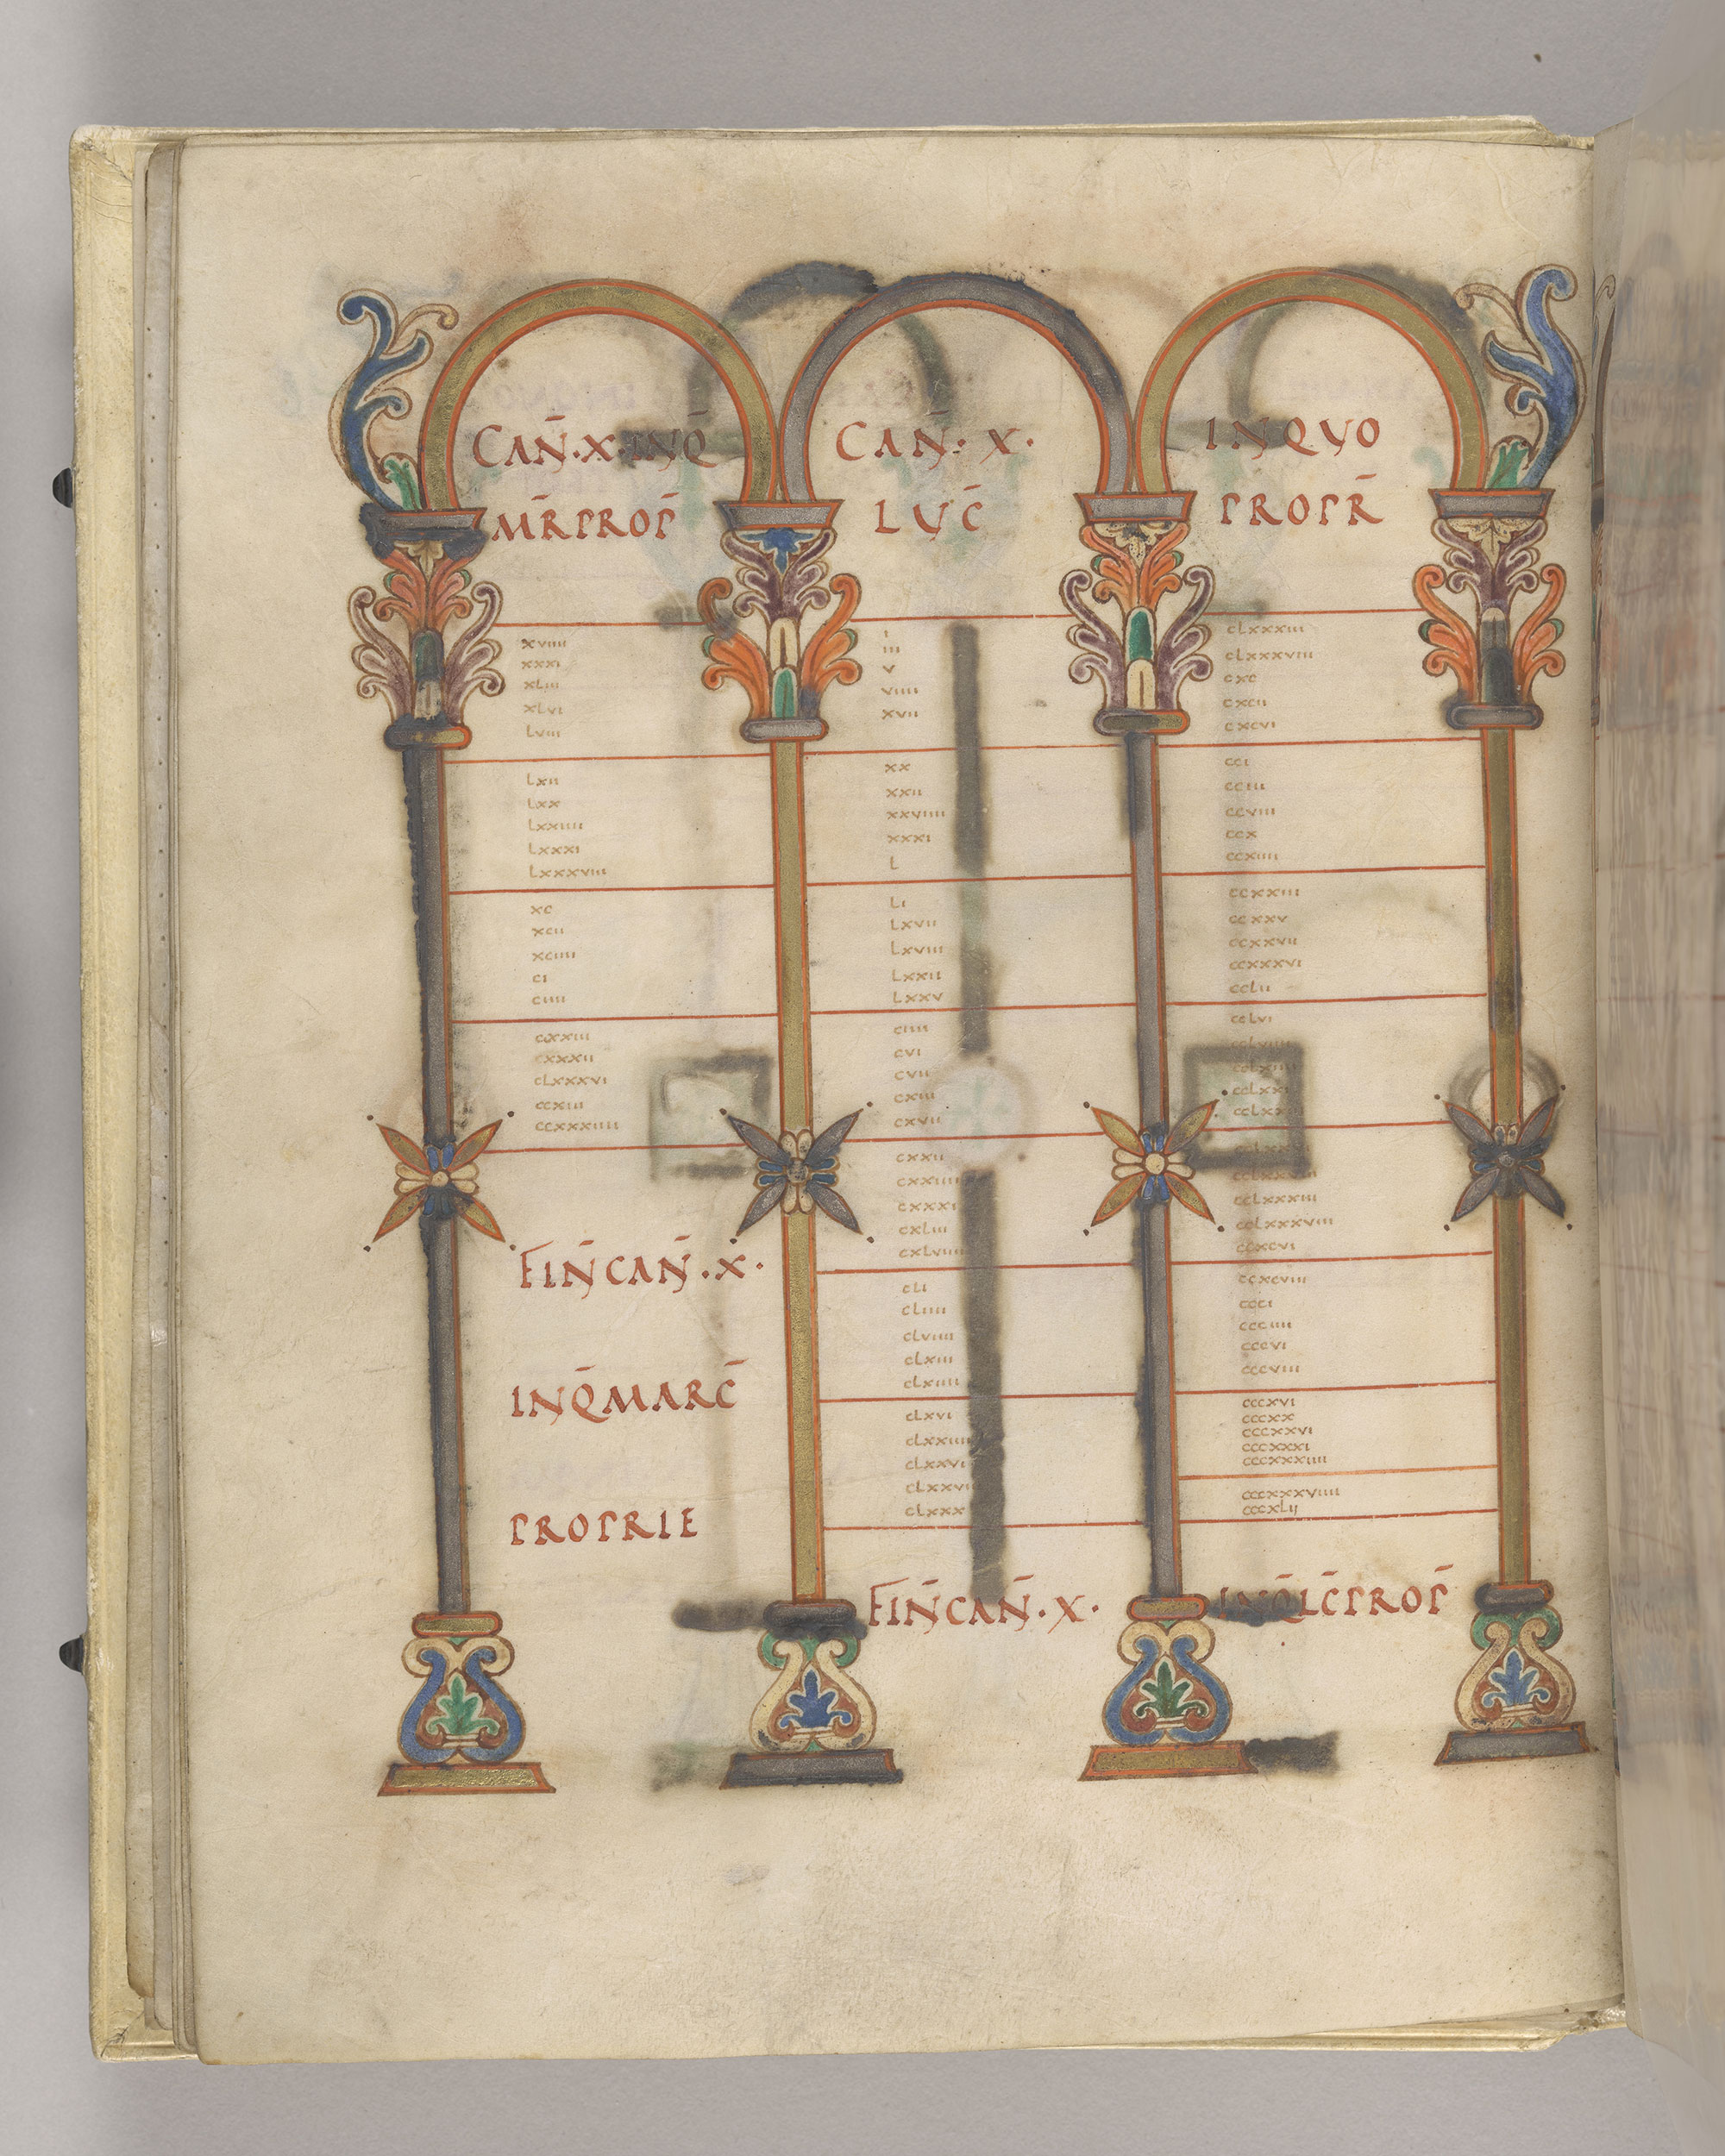 CAN̄·X·INQ̄
MR̄PROP̄
xviiii
xxxi
xLiii
xLvi
Lviii
Lxii
Lxx
Lxxiiii
Lxxxi
Lxxxviii
xc
xcii
xciiii
ci
ciiii
cxxiii
cxxxii
cLxxxvi
ccxiii
ccxxxiiii
FIN̄CAN̄·X·
INQ̄MARC̄
PROPRIE
CAN̄: X·
LUC̄
i
iii
v
viiii
xvii
xx
xxii
xxviiii
xxxi
L
Li
Lxvii
Lxviii
Lxxii
Lxxv
ciiii
cvi
cvii
cxiii
cxvii
cxxii
cxxiiii
cxxxi
cxLiii
cxLviiii
cLi
cLiiii
cLviiii
cLxiii
cLxiiii
cLxvi
cLxxiiii
cLxxvi
cLxxvi
cLxxx
FIN̄CAN̄·X·
INQUO
PROPR̄
cLxxxiii
cLxxxviii
cxc
cxcii
cxcvi
cci
cciii
ccviii
ccx
ccxiiii
ccxxiii
ccxxv
ccxxvii
ccxxxvi
ccLii
ccLvi
ccLxxxiii
ccLxxxviii
ccxcvi
ccxcviii
ccci
ccciiii
cccvi
cccviii
cccxvi
cccxx
cccxxvi
cccxxxi
cccxxxiiii
cccxxxviiii
cccxLii
INQ̄LC̄PROP̄